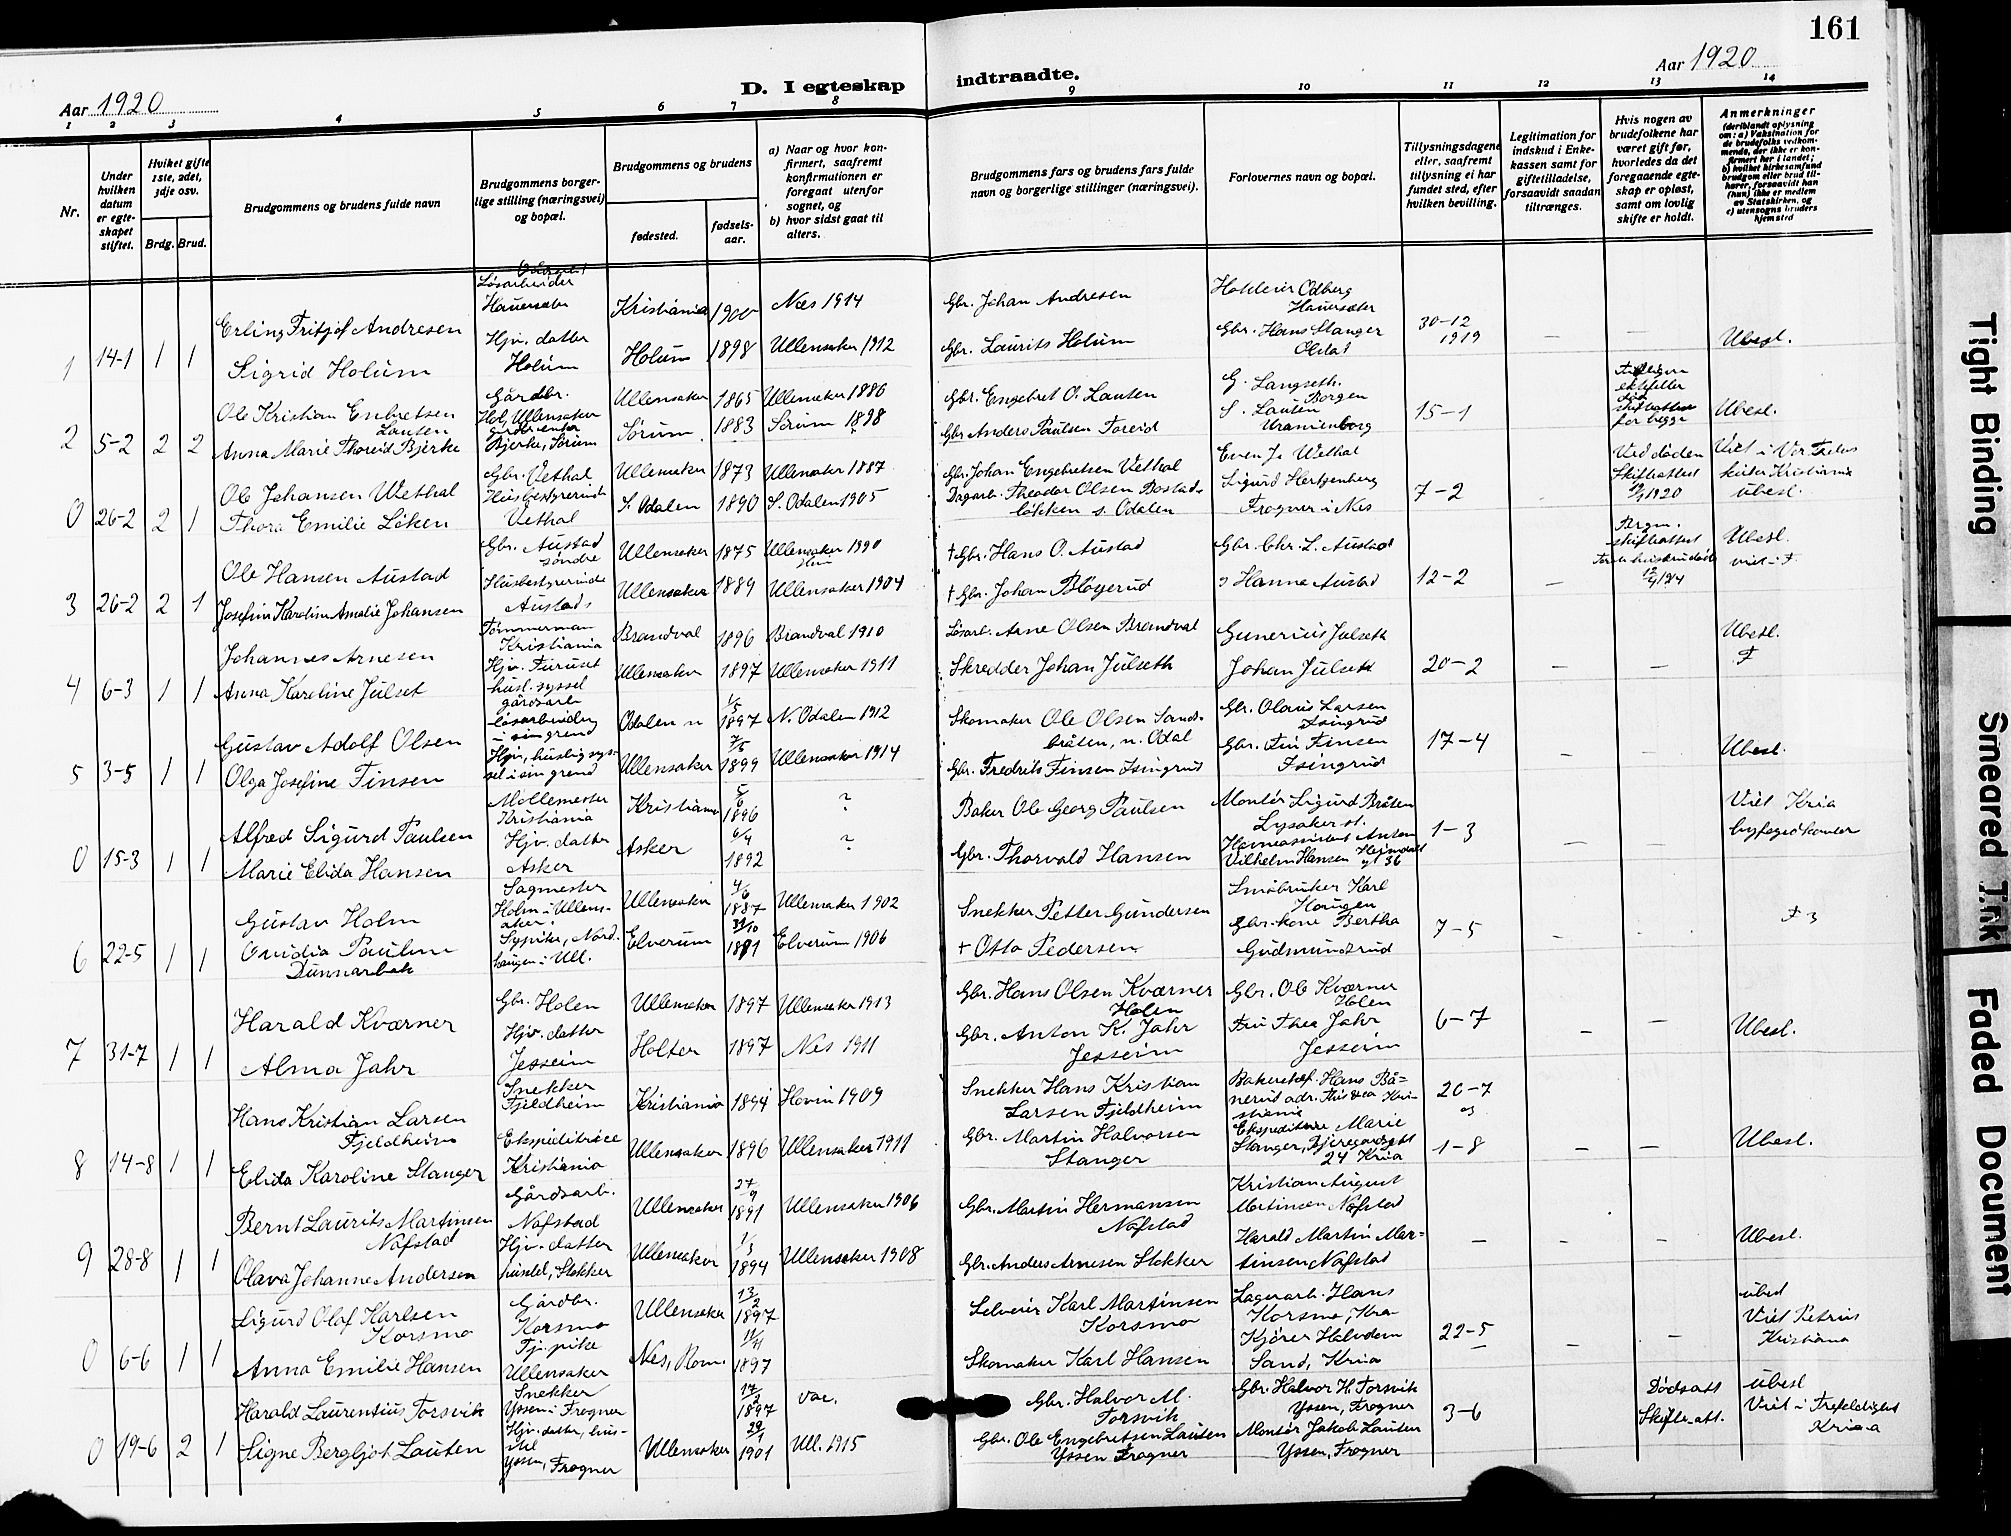 161
D. I egteskap indtraadte.
Aar 1920
Aar 1920
1 2 3 4 5 6 7 8 9 10 11 12 13 14
Nr.
Under hvilken datum er egteskapet stiftet.
Hviket gifte 1ste, 2det, 3dje osv.
Brdg. Brud.
Brudgommens og brudens fulde navn
Brudgommens borgerlige stilling (næringsvei) og bopæl.
Brudgommens og brudens
fødested.
fødselsaar.
a) Naar og hvor konfirmert, saafremt konfirmationen er foregaat utenfor sognet, og
b) hvor sidst gaat til alters.
Brudgommens fars og brudens fars fulde navn og borgerlige stillinger (næringsvei).
Forlovernes navn og bopæl.
Tillysningsdagene eller, saafremt tillysning ei har fundet sted, efter hvilken bevilling.
Legitimation for indskud i Enkekassen samt for giftetilladelse, forsaavidt saadan tiltrænges.
Hvis nogen av brudefolkene har været gift før, hvorledes da det foregaaende egteskap er opløst, samt om lovlig skifte er holdt.
Anmerkninger
(deriblandt oplysning om: a) Vaksination for de brudefolks vedkommende, der ikke er konfirmert her i landet; b) hvilket kirkesamfund brudgom eller brud tilhører, forsaavidt han (hun) ikke er medlem av Statskirken, og c) utensogns bruders hjemsted
Løsarbeider Hauerseter
Erling Fritjof Andresen Kristiania 1900 Næs 1914 Gbr. Johan Andresen Odberg Hauerseter
1 14-1 1 1 Sigrid Holum Hjv. datter Holum Holum 1898 Ullensaker 1912 Gbr. Laurits Holum Gbr. Hans Stanger Olstad 30-12 1919 — — Ubesl.
Ole Kristian Enbretsen Lauten Gårdbr. Hol, Ullensaker Ullensaker 1865 Ullensaker 1886 Gbr. Engebret O. Lauten G. Langseth. Borgen
2 5-2 2 2 Anna Marie Thoreid Bjerke Bjerke, Sørum Sørum 1883 Sørum 1898 Gbr Anders Paulsen Foreid S. Lauten Uranienborg 15-1 skifteattest for begge Ubesl.
Ole Johansen Wethal Gbr. Vethal Ullensaker 1873 Ullensaker 1887 Gbr. Johan Engebretsen Vethal Even J. Wethal Ved døden Viet i Vor Frelsers
0 26-2 2 1 Thora Emilie Løken Husbestyrerinde Vethal S. Odalen 1890 S. Odalen 1905 Dagarb. Theodor Olsen Bostad- løkken s. Odalen Sigurd Hertzenberg Frogner i Nes 7-2 Skifteattest 1920 kirke Kristiania ubesl.
Ole Hansen Austad Gbr. Austad søndre Ullensaker 1875 Ullensaker 1890 † Gbr. Hans O. Austad Gbr. Chr. L. Austad skifteattest Ubesl.
3 26-2 2 1 Josefine Karoline Amalie Johansen Husbestyrerinde Austad s Ullensaker 1889 Ullensaker 1904 † Gbr. Johan Bløgerud Hanne Austad 12-2 —
Johannes Arnesen Tømmermann Kristiania Brandval 1896 Brandval 1910 Løsarb. Arne Olsen Brandval Gunerius Julseth Ubesl.
4 6-3 1 1 Anna Karoline Julset Hjv. Furuset husl. syssel Ullensaker 1897 Ullensaker 1911 Skredder Johan Julseth Johan Julseth 20-2 — — F
Gustav Adolf Olsen gårdsarb løsarbeider Odalen n 1/5 1897 N. Odalen 1912 Skomaker Ole Olsen Sandbråten, n. Odal Gbr. Olaus Larsen Isingrud
5 3-5 1 1 Olga Josefine Finsen Hjv., huslig syssel i singrend Ullensaker 7/5 1899 Ullensaker 1914 Gbr. Fredrik Finsen Isingrud Gbr. Fin Finsen Isingrud 17-4 — — Ubesl.
Alfred Sigurd Paulsen Møllemester Kristiania Kristiania 5/6 1896 ? Baker Ole Georg Paulsen Montør Sigurd Bråten Lysaker st. Viet Kria
0 15-3 1 1 Marie Elida Hansen Hjv. datter Asker Asker 6/4 1892 ? Gbr. Thorvald Hansen Anton Vilhelm Hansen 36 1-3 — byfogedkontor
Gustav Holm Sagmester Holm i Ullensaker Ullensaker 4/6 1887 Ullensaker 1902 Snekker Petter Gundersen Småbruker Karl Haugen
6 22-5 1 1 Ovidia Pauline Dunnarbak Sypike, Nordhaugen i Ull. Elverum 31/10 1891 Elverum 1906 † Otto Pedersen Gbr. kone Bertha Gudmundsrud 7-5
Harald Kværner Gbr. Holen Ullensaker 1897 Ullensaker 1913 Gbr. Hans Olsen Kværner Holen Gbr. Ole Kværner Holen
7 31-7 1 1 Alma Jahr Hjv. datter Jesseim Holter 1897 Nes 1911 Gbr. Anton K. Jahr Jesseim Fru Thea Jahr Jesseim 6-7 — — Ubesl.
Hans Kristian Larsen Fjeldheim Snekker Fjeldheim Kristiania 1894 Hovin 1909 Snekker Hans Kristian Larsen Fjeldheim Hans Bånerud 20-7 og
8 14-8 1 1 Elida Karoline Stanger Ekspeditrice Kristiania Ullensaker 1896 Ullensaker 1911 Gbr. Martin Halvorsen Stanger Ekspeditrise Marie Stanger, Bjeregårdsgt 24 Kria 1-8 — — Ubesl.
Bernt Laurits Martinsen Nafstad Gårdsarb. Nafstad Ullensaker 27/9 1891 Ullensaker 1906 Gbr. Martin Hermansen Nafstad Kristian August Martinsen Nafstad
9 28-8 1 1 Olava Johanne Andersen Hjv. datter Stokker Ullensaker 1/3 1894 Ullensaker 1908 Gbr. Anders Arnesen Stokker Harald Martin Martinsen Nafstad — — — Ubesl.
Sigurd Olaf Karlsen Korsmo Gårdbr. Korsmo Ullensaker 13/2 1897 Selveier Karl Martinsen Korsmo Lagerarb. Hans Korsmo, Kra ubesl
0 6-6 1 1 Anna Emilie Hansen Tj. pike Ullensaker Nes, Rom. 11/11 1897 Skomaker Karl Hansen Kjører Halvdan Sand, Kria 22-5 — — Viet Petrus Kristiania
Harald Laurentius Torsvik Snekker Yssen i Frogner 17/2 1897 vac. Gbr. Halvor M. Torsvik Gbr. Halvor H. Torsvik Yssen, Frogner Dødsatt ubesl
0 19-6 2 1 Signe Bergljot Lauten Hjv. datter, Yssen, Frogner Ullensaker 29/1 1901 Ull. 1915 Gbr. Ole Engebretsen Lauten Yssen Frogner Montør Jakob Lauten Yssen, Frogner 3-6 Skifte-att. Viet i Trefoldighet Kria
Tight Binding
Smeared Ink
Faded Document